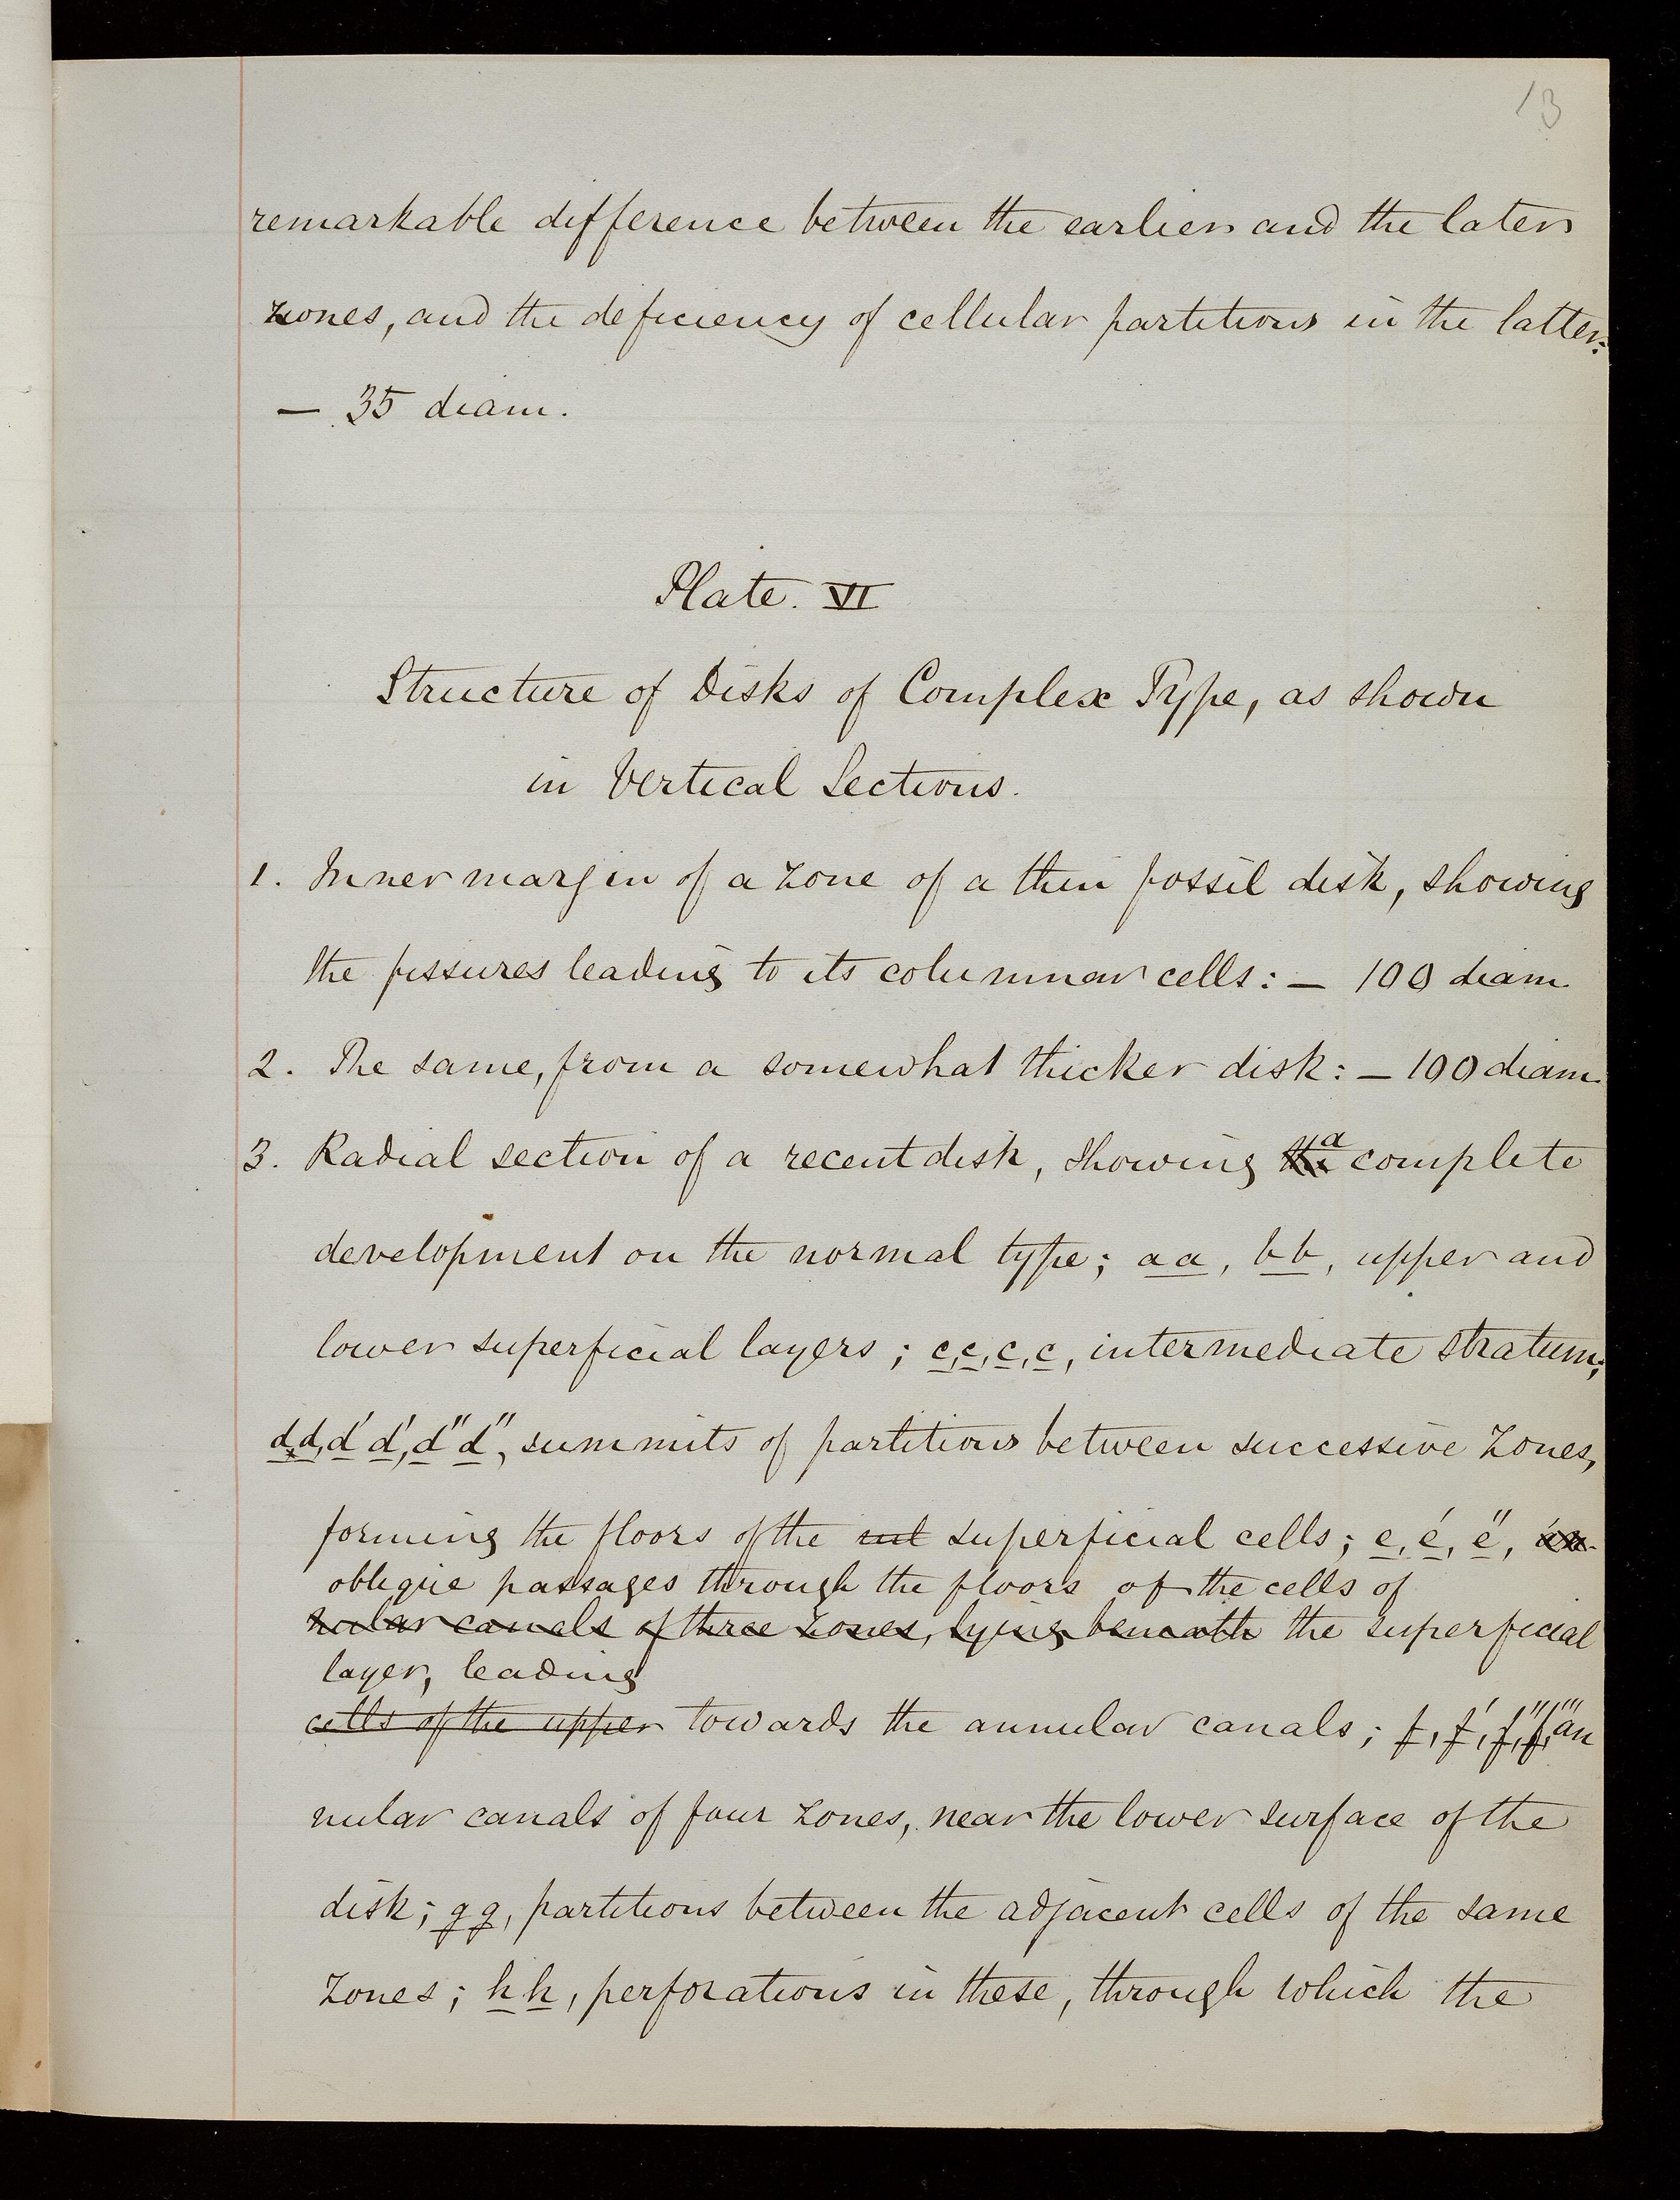 13
remarkable difference between the earlier and the later
zones, and the deficiency of cellular partitions in the latter:
— 35 diam.
Plate. VI
Structure of Disks of Complex Type, as shown
in Vertical Sections.
1. Inner margin of a zone of a thin fossil disk, showing
the fissures leading to its columnar cells: — 100 diam.
2. The same, from a somewhat thicker disk: — 100 diam.
3. Radial section of a recent disk, showing the a complete
development on the normal type; a a, b b, upper and
lower superficial layers; c, c, c, c, intermediate stratum;
d, d, d' d', d" d", summits of partitions between successive zones,
forming the floors of the sul superficial cells; e, e', e", an-
oblique passages through the floors of the cells of
nular canals of three zones, lying beneath the superficial
layer, leading
cells of the upper towards the annular canals; f, f', f", f''', an
nular canals of four zones, near the lower surface of the
disk; g g, partitions between the adjacent cells of the same
zones; h h, perforations in these, through which the